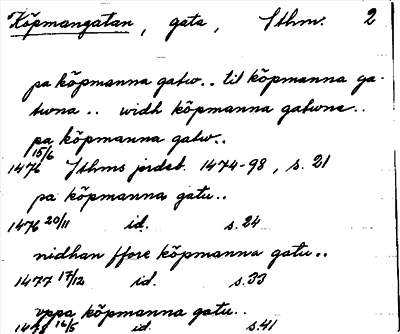 Köpmangatan, gata, Sthm. 2
pa köpmanna gatw.. til köpmanna ga-
twna.. widh köpmanna gatwne..
pa köpmanna gatw..
1476 15/6 Sthms jordeb. 1474-98, s. 21
pa köpmanna gatu..
1476 20/11 id. s. 24
nidhan ffore köpmanna gatu..
1477 17/12 id. s. 33
vppa köpmanna gatu..
1478 16/5 id. s. 41